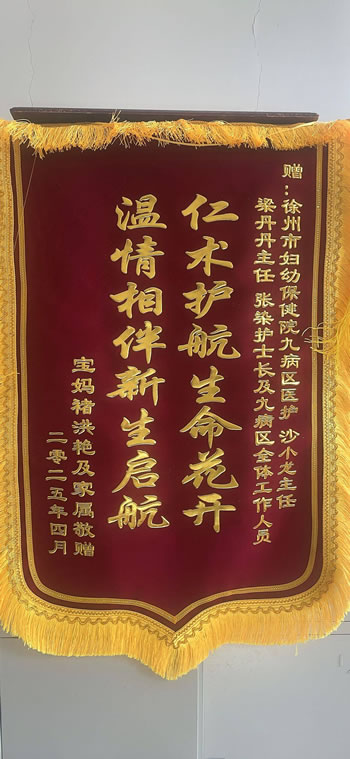 赠：徐州市妇幼保健院九病区医护 沙小龙主任
梁丹丹主任 张梁护士长及九病区全体工作人员
仁术护航生命花开
温情相伴新生启航
宝妈褚洪艳及家属敬赠
二零二五年四月